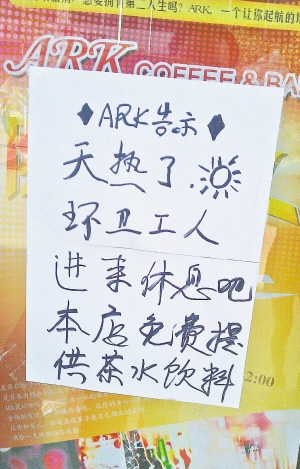 第二人生吗？ARK，一个让你起航的
ARK
COFFEE & BA
◆ARK告示◆
天热了.
环卫工人
进来休息吧
本店免费提
供茶水饮料
2:00